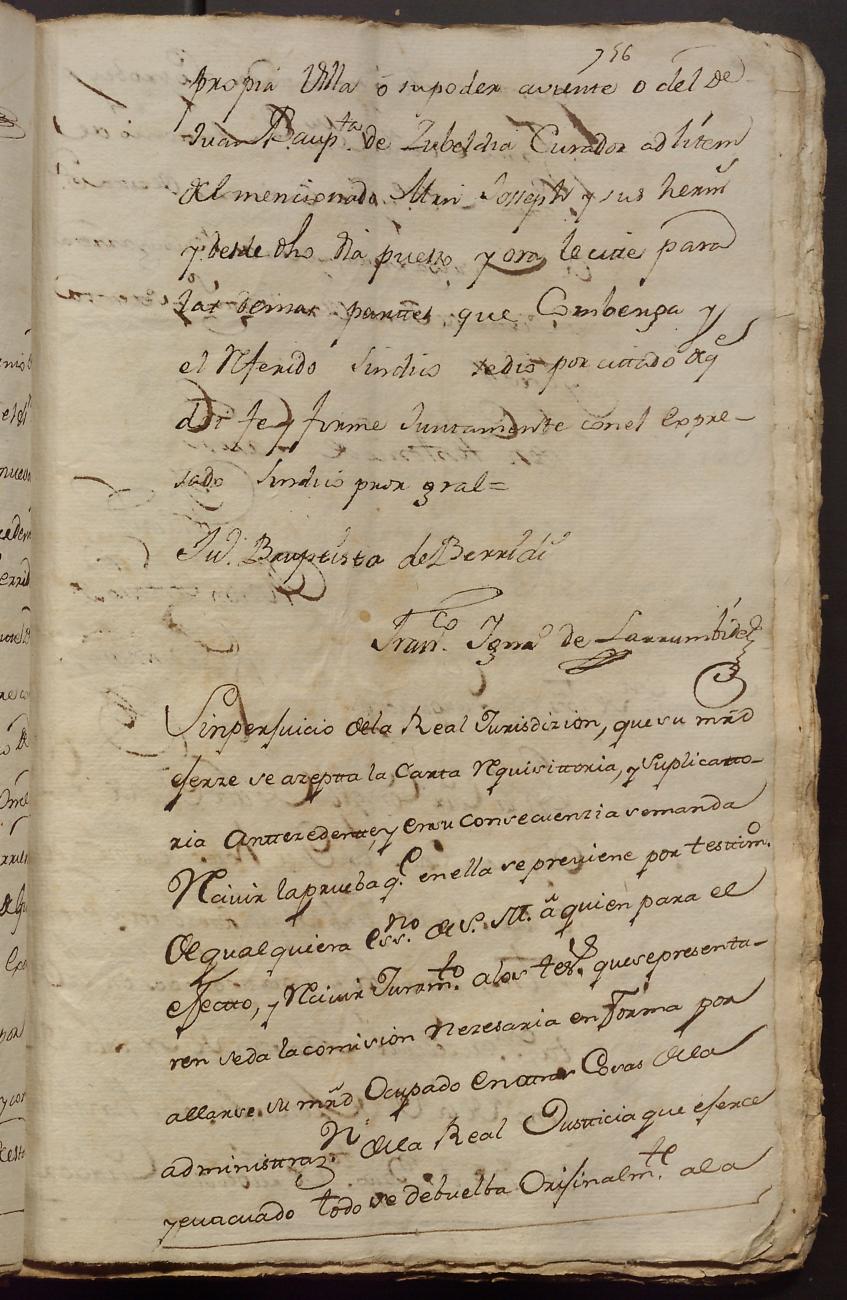 756
propia Villa ô su poder aviente o del de
Juan Baupta. de Zubeldia Curador ad litem
del mencionado Mrn Joseph y sus herms
y desde dho dia puesto y ora le cite para
las demas partes que Combenga y
el Rferido Sindico se dio por cittado de qe
doi fe y firme Juntamente con el Expre-
sado Sindico pror gral=
Ju. Bauptista de Berridi
Franco. Igno de Larrumbide
Sin perjuicio de la Real Jurisdizion, que su mrd
ejerze se azeptta la Cartta Rquisittoria, y Suplicatto-
ria Antteredente, y en su consecuenzia se manda
Rcivir la prueba qe. en ella se previene por testtimo.
de qualquiera essno. de S. M. â quien para el
efectto, y Rcivir Juramto. a los tesgs. que se presenta-
ren se da la comision Nezesaria en forma por
allarse su mrd Ocupado en otras Cosas de la
administtrazn. de la Real Justticia que eferce
y evacuado todo se debuelba Orijinalmte. a la